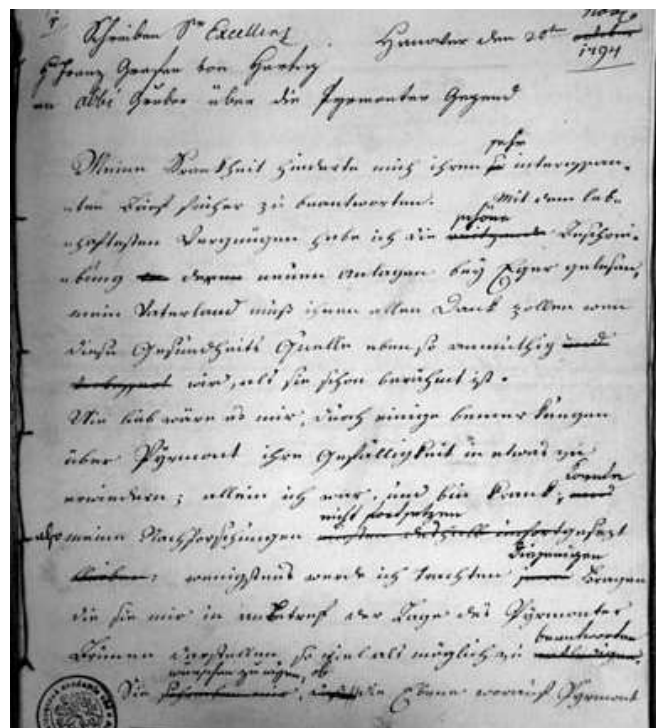 Schreiben Sr Excellenz
Hanover den 20ten Nov. october
1794
H. Franz Grafen von Hartig
an Abbé Gruber über die Pyrmonter Gegend
Meine Krankheit hinderte mich ihren so sehr interessan-
ten Brief früher zu beantworten. Mit dem leb-
haftesten Vergnügen habe ich die reitzende schöne Beschrei-
bung deren neuen Anlagen bey Eger gelesen,
mein Vaterland muß ihnen allen Dank zollen wenn
diese Gesundheits Quelle eben so anmuthig und
verbessert wird, als sie schon berühmt ist.
Wie lieb wäre es mir, durch einige bemerkungen
über Pyrmont ihre Gefälligkeit in etwas zu
erwiedern; allein ich war, und bin krank, konnte
also meine Nachforschungen nicht fortsetzen
blieben: wenigstens werde ich trachten jene diejenigen Fragen
die sie mir in anbetref der Lage des Pyrmonter
Brunnen darstellen, so viel als möglich zu beantworten
Sie wünschen zu wissen, ob die Ebene worauf Pyrmont